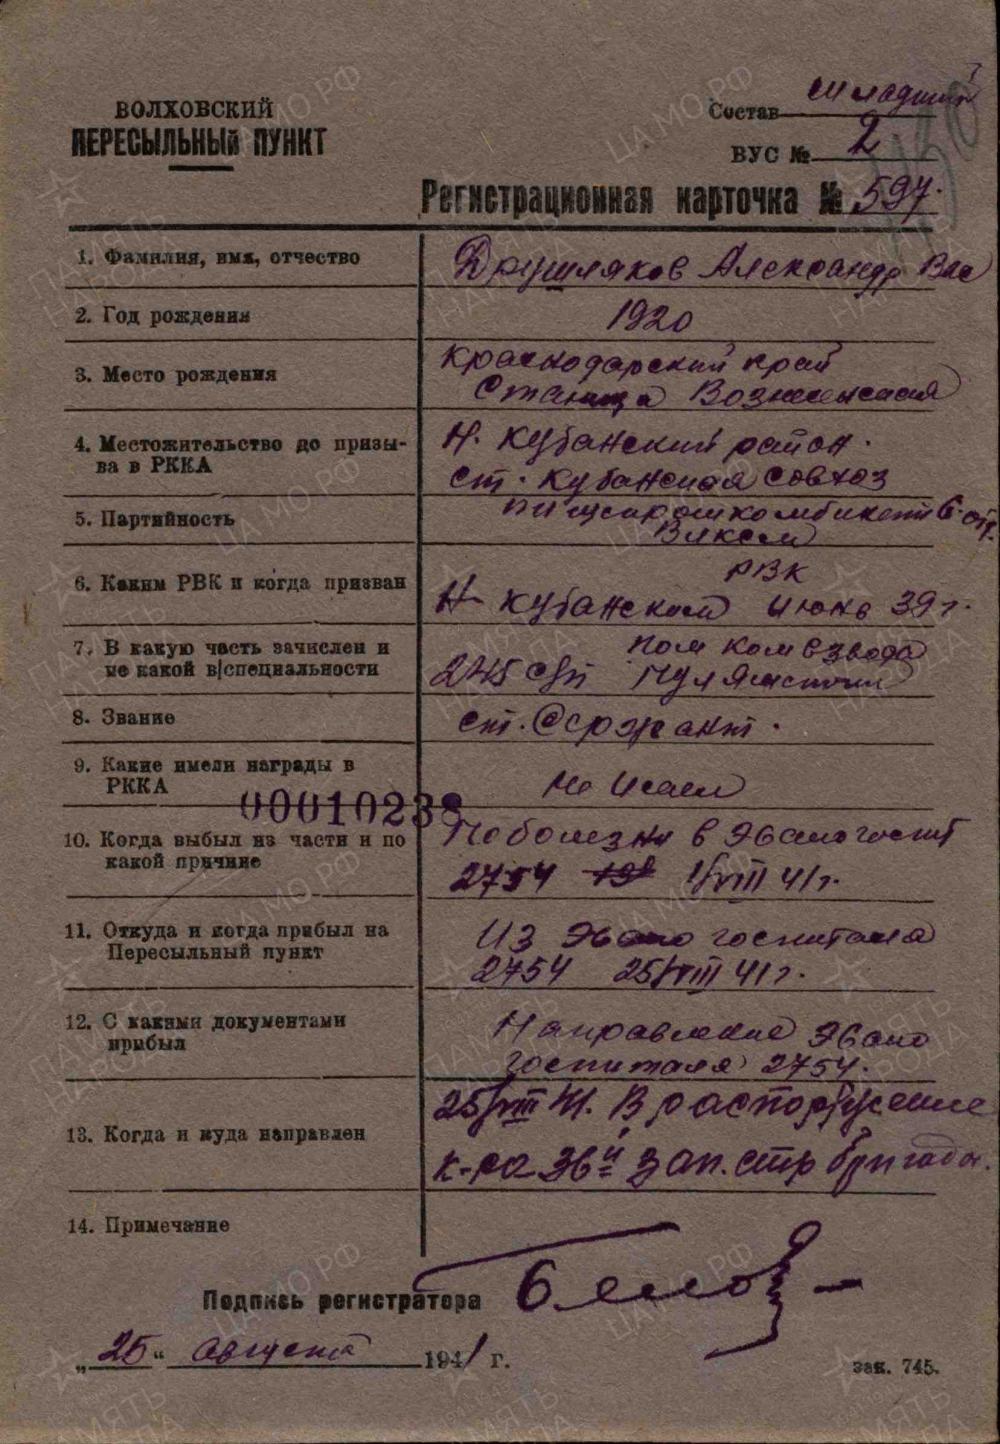 ВОЛХОВСКИЙ
ПЕРЕСЫЛЬНЫЙ ПУНКТ
Состав младший
ВУС № 2
Регистрационная карточка № 597.
1. Фамилия, имя, отчество Друшляков Александр Вас
2. Год рождения 1920
3. Место рождения Краснодарский край
Станица Вознесенская
4. Местожительство до призы-
ва в РККА
Н. Кубанский район.
ст. Кубанская совхоз
5. Партийность
Влксм
6. Каким РВК и когда призван РВК
Н-Кубанском июнь 39 г.
7. В какую часть зачислен и
не какой в/специальности
пом ком взвода
245 сп
8. Звание ст. Сержант.
9. Какие имели награды в
РККА
Не имел
00010238
10. Когда выбыл из части и по
какой причине
По болезни в Эвакогоспит
2754 1/VIII 41 г.
11. Откуда и когда прибыл на
Пересыльный пункт
Из Эвако госпиталя
2754 25/VIII 41 г.
12. С какими документами
прибыл
Направление Эвако
госпиталя 2754.
13. Когда и куда направлен
25/VIII 41. В распоряжение
к-ра 36й зап. стр бригады.
14. Примечание
Подпись регистратора
„25“ августа 1941 г.
зак. 745.
ПАМЯТЬ НАРОДА
ЦА МО РФ